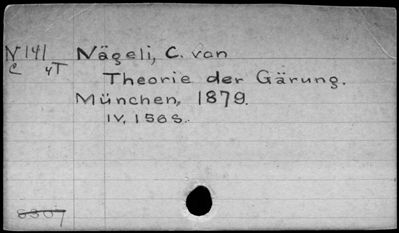 N 141 Nägeli, C. von
C 4T
Theorie der Gärung.
München, 1879.
IV, 156 S.
8307